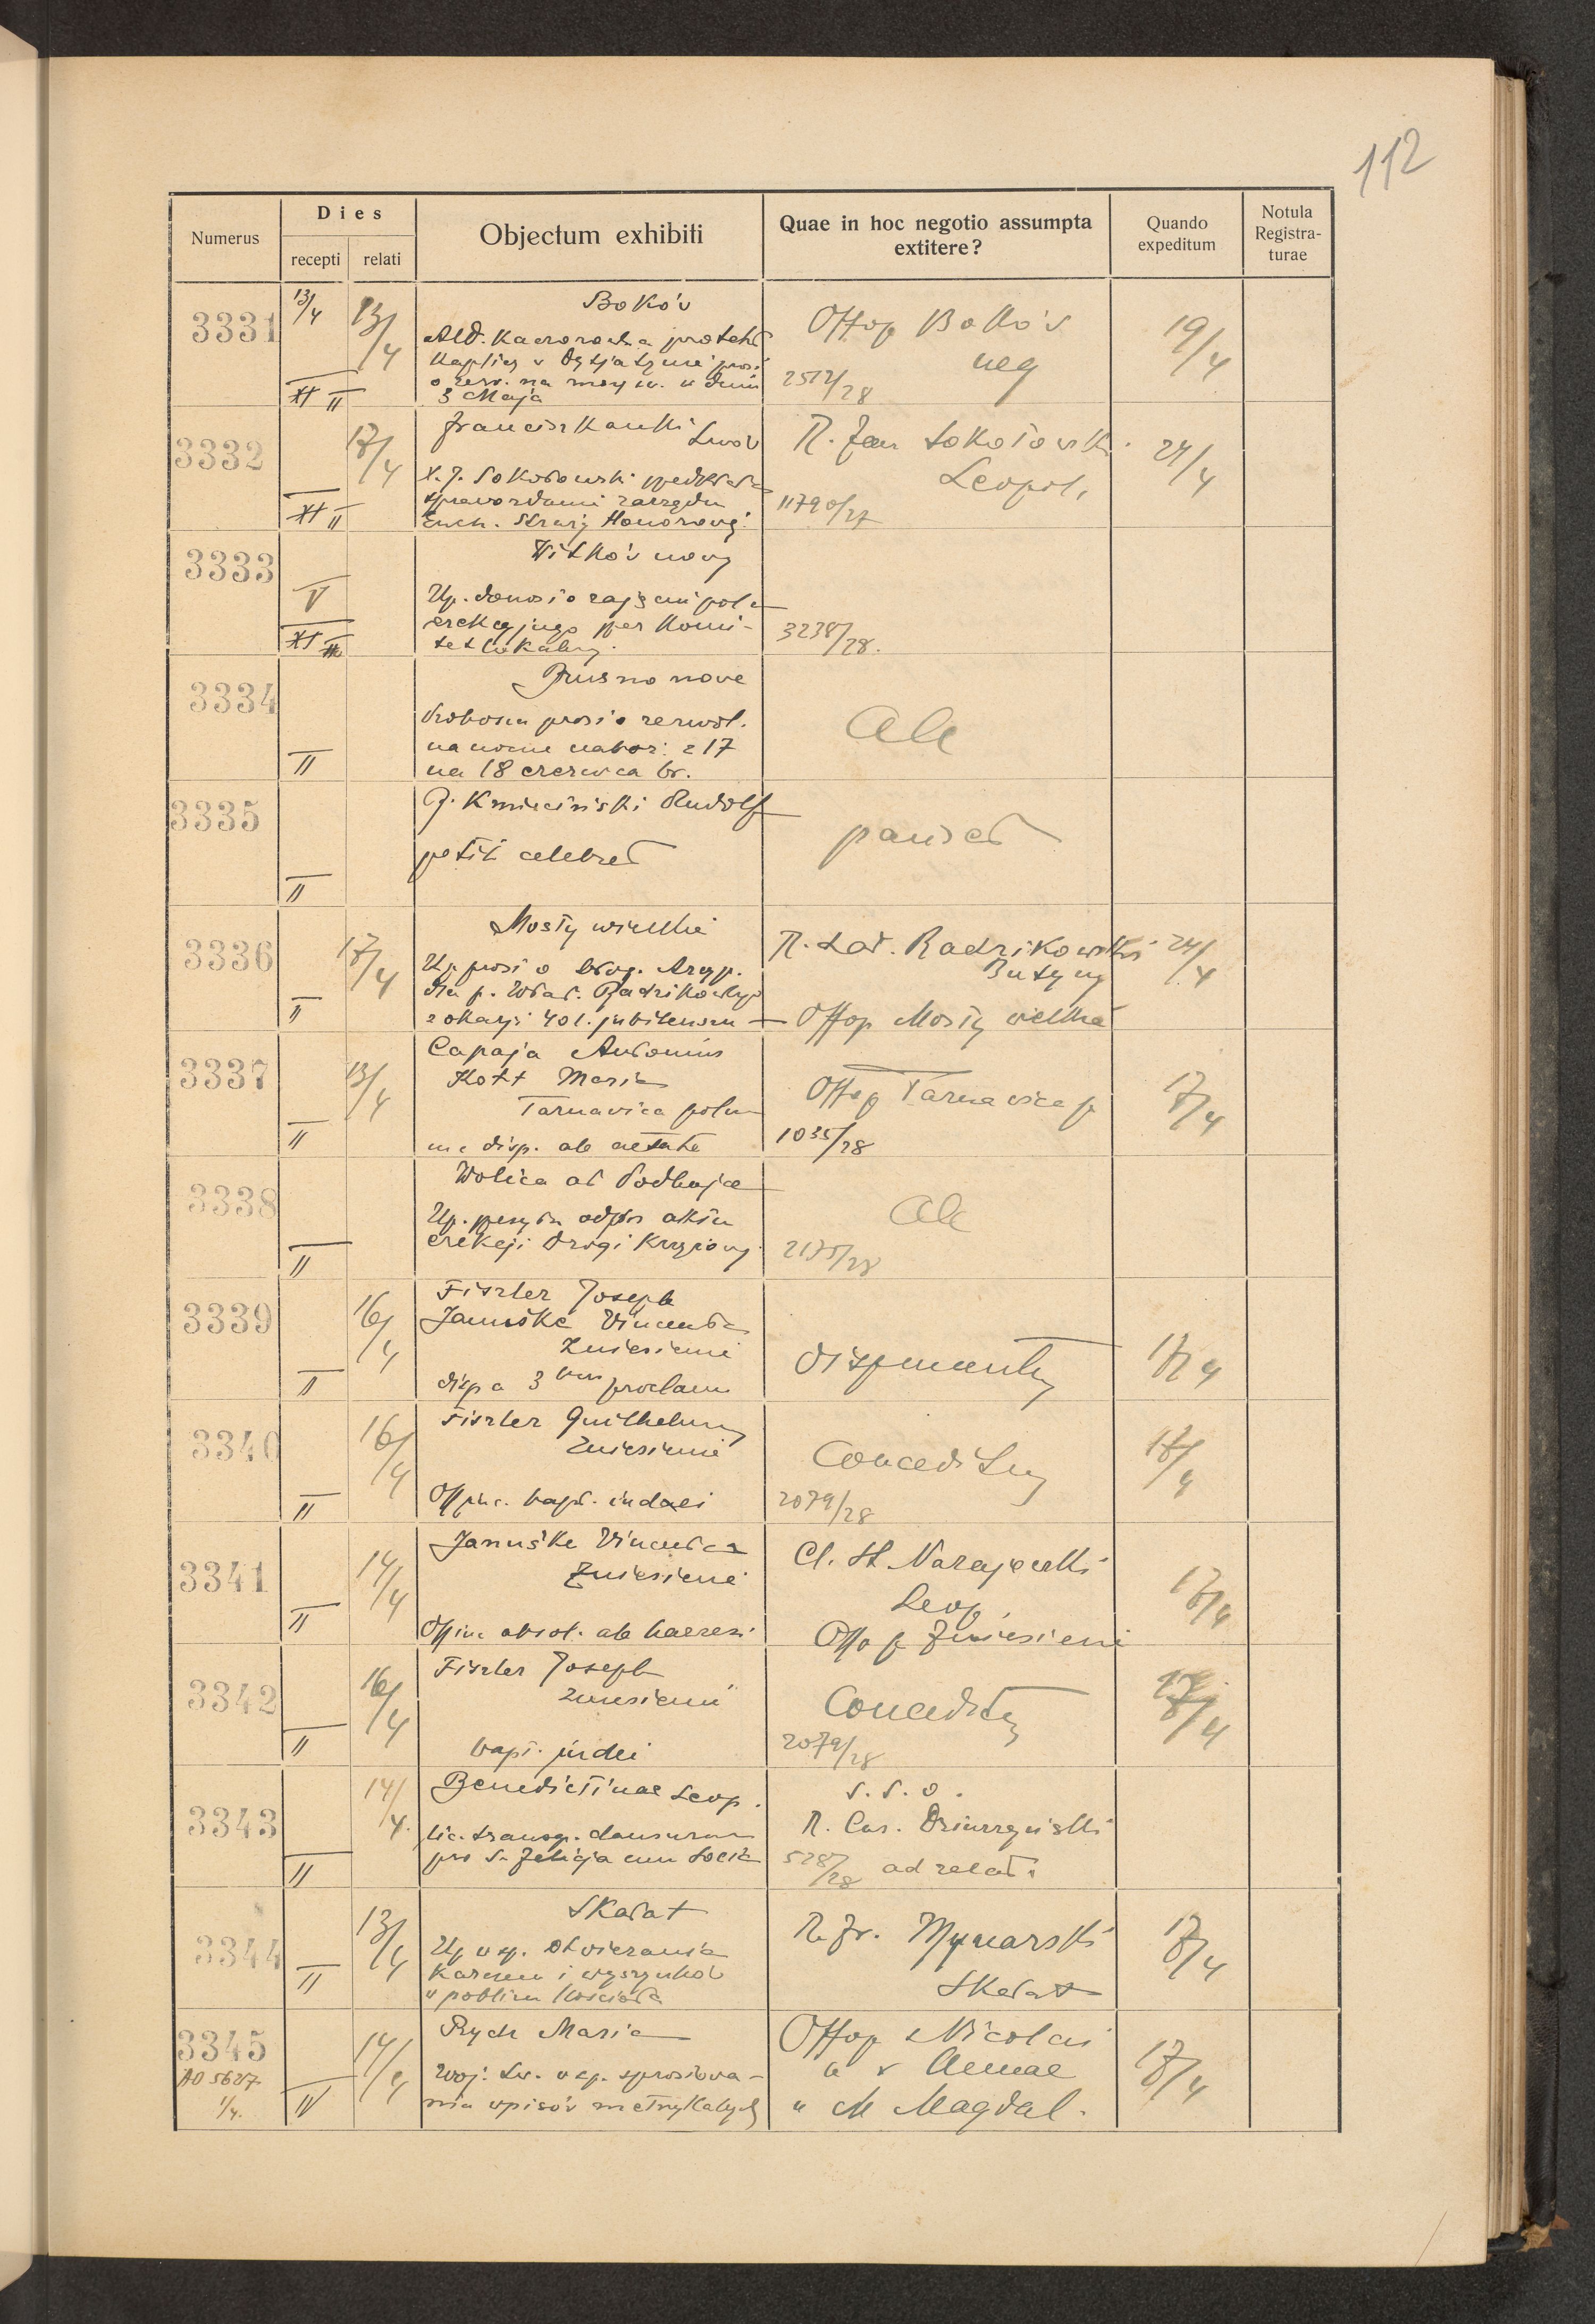 112
Numerus
Dies
recepti relati
Objectum exhibiti
Quae in hoc negotio assumpta
extitere?
Quando
expeditum
Notula
Registra-
turae
3331
13/4
13/4
XI II
Boków
kaplicy w
prosi
na w dniu
3 Maja
Offop Boków
neg
2512/28
19/4
3332
17/4
XI II
Franciszkanki Lwów
X. J. Sokołowski przedkłada
sprawozdanie zarządu
Euch. Straży Honorowej
R. Jan Sokołowski
Leopol.
11790/27
24/4
3333
V
XI
Witków nowy
Up. donosi o zajęciu pola
erekcyjnego przez komi-
tet lokalny.
3238/28.
3334
II
Brusno nowe
Proboszcz prosi o zezwol.
na nocne naboż: z 17
na 18 czerwca br.
Ale
3335
II
J. Kmieciński Rudolf
petit celebret
3336
17/4
II
Mosty wielkie
Up prosi o błog. Arcyp.
dla p. Wład. Radzikowskiego
z okazji 40 l. jubileuszu
R. Lad. Radzikowski
Butyny
Offop Mosty wielkie
24/4
3337
13/4
II
Capaja Antonius
Kott Maria
Tarnavica polna
disp. ab aetate
Offop Tarnavica p
1035/28
17/4
3338
II
Wolica ad Podhajce
Up. przesyła odpis aktu
erekcji Drogi Krzyżowej
Ale
2175/28
3339
16/4
II
Fiszler Joseph
Januske Vincenta
Zniesienie
disp a 3bus proclam
dispensentur
17/4
3340
16/4
II
Fiszler Guilhelmus
Zniesienie
Offinc. bapt. iudaei
Conceditur
2079/28
17/4
3341
14/4
II
Januske Vincenta
Zniesienie
Offinc absol. ab haeresi
Cl. St. Narajewski
Leop.
Offop Zniesienie
17/4
3342
16/4
II
Fiszler Joseph
Zniesienie
bapt. judei
Conceditur
2079/28
17/4
3343
14/4.
II
Benedictinae Leop.
lic. transgr. clausuram
pro S. Felicja cum socia
S. S. O.
R. Cas. Dziurzyński
528/28 ad relat.
3344
13/4
II
Skałat
Up w sp. otwierania
karczem i wyszynków
w pobliżu kościoła
R. Fr. Mynarski
Skałat
17/4
3345
AD 5627
1/4.
14/4
IV
Rych Maria
Woj. Lw. w sp. sprostowa-
nia wpisów metrykalnych
Offop Nicolai
" " Annae
" M Magdal.
17/4